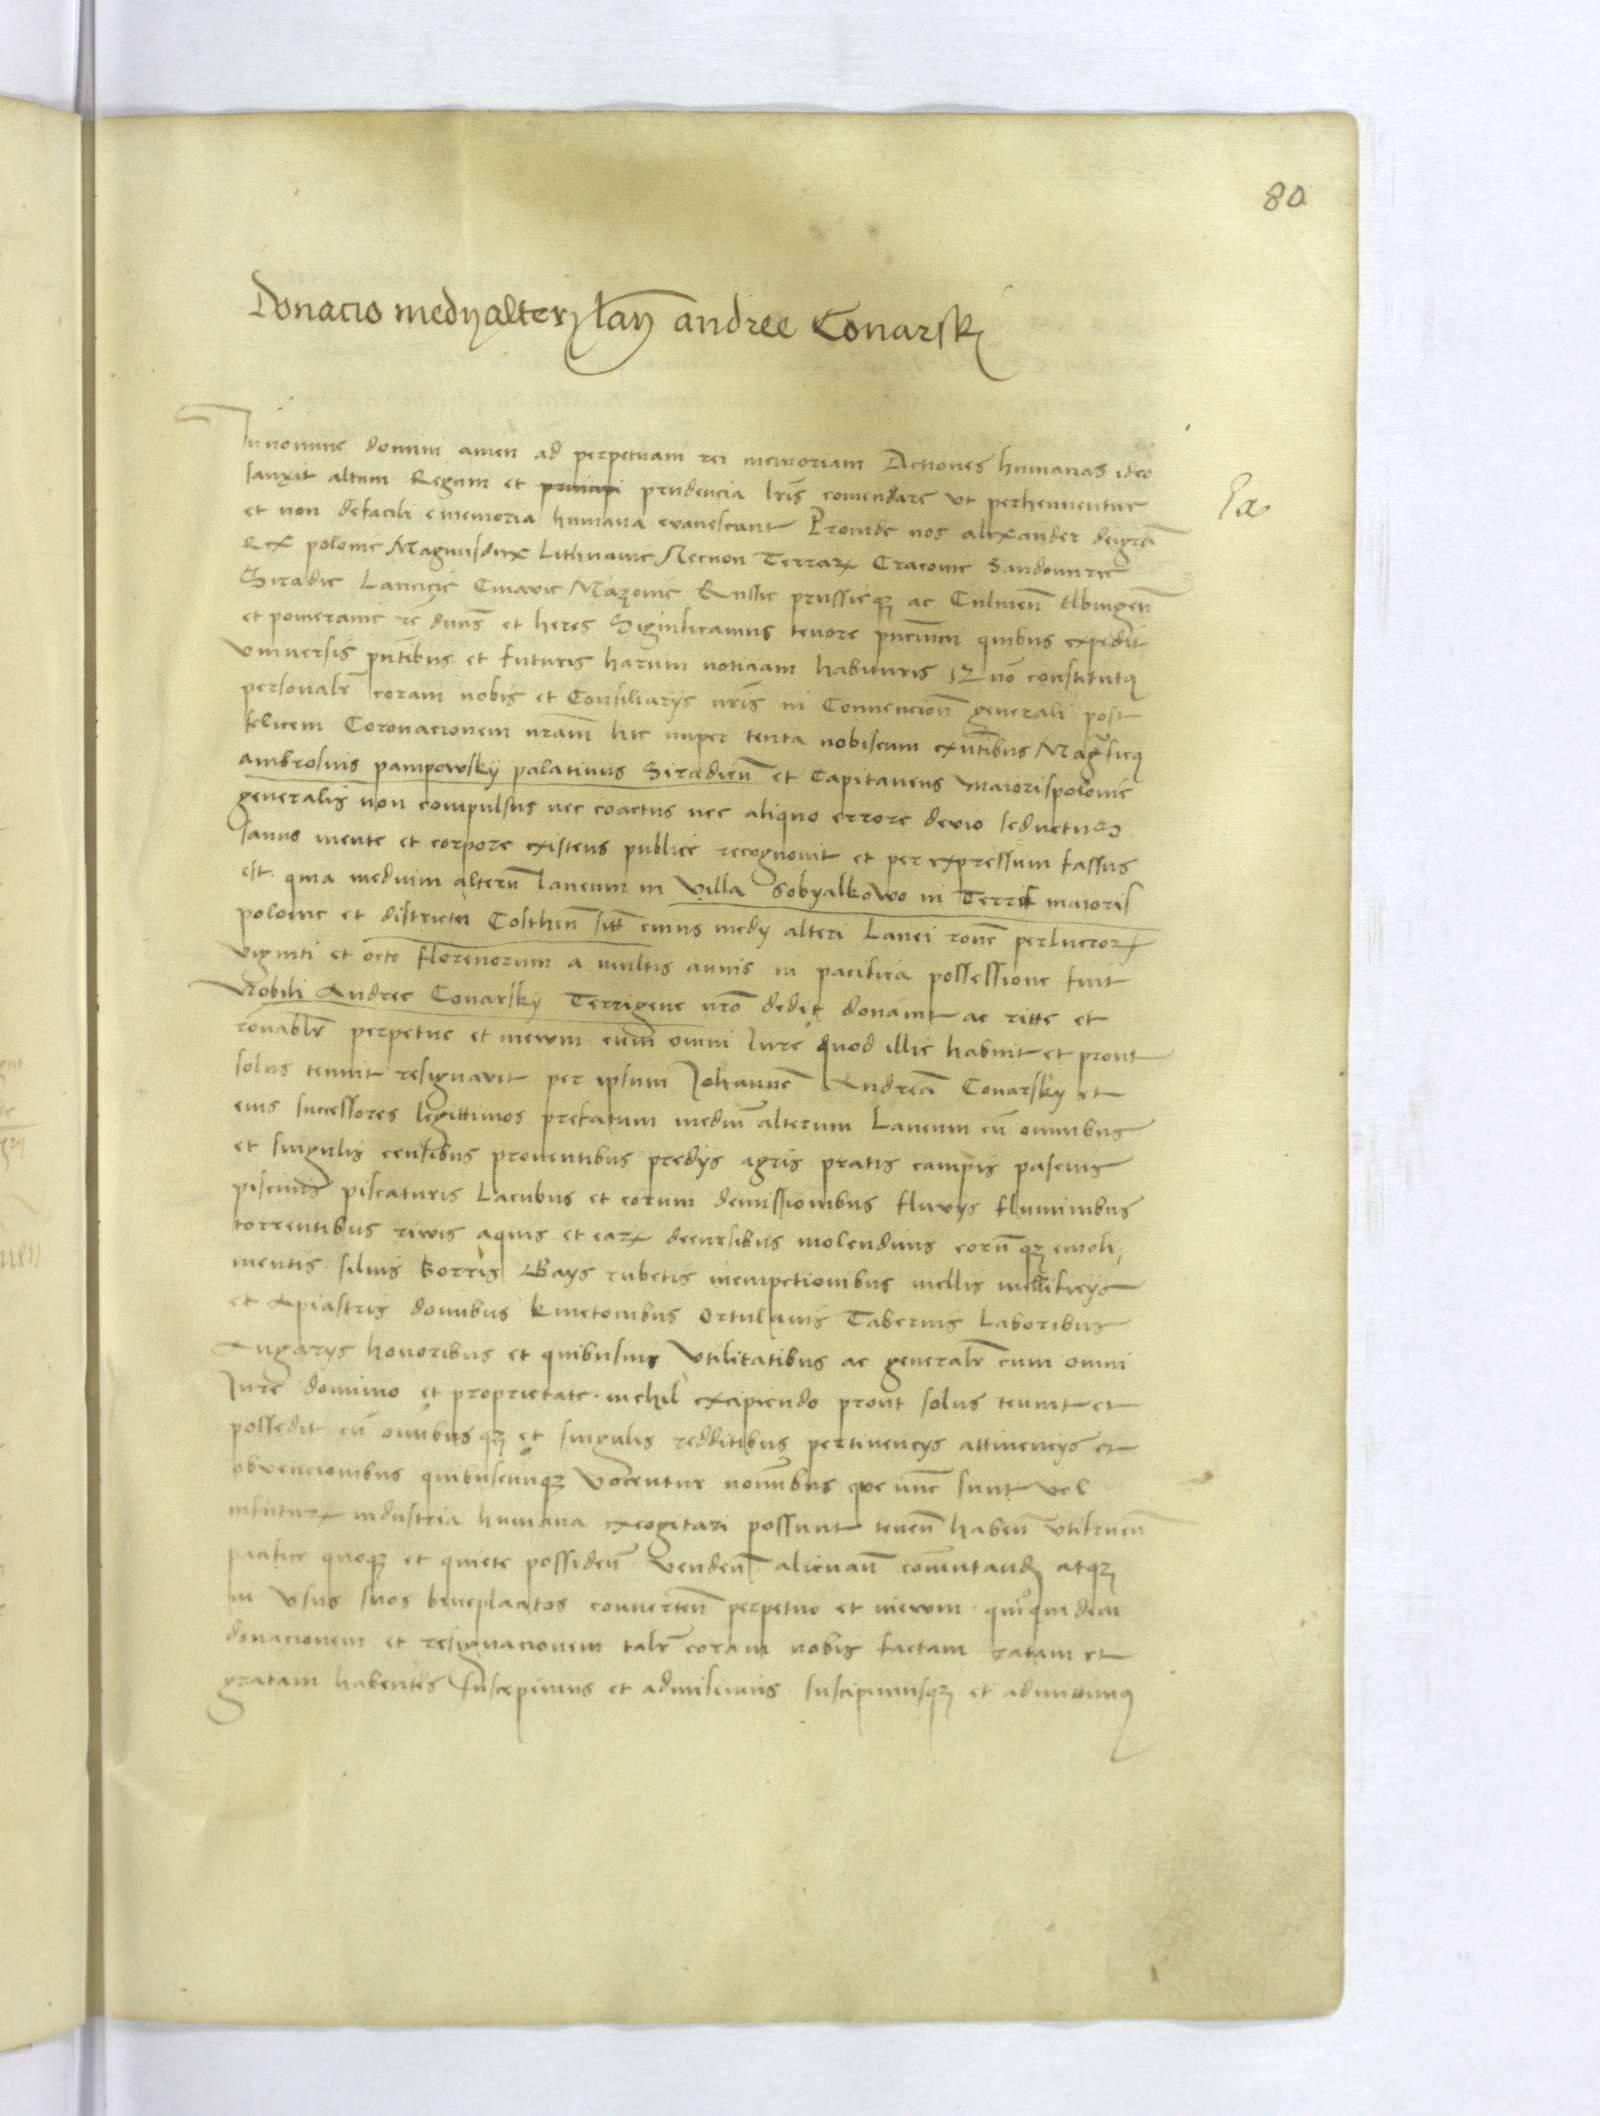 80
Donacio medy alterỹ lan̄ andree Conarskÿ
In nomine domini amen ad perpetuam rei memoriam Actiones humanas ideo
sanxit altum Regum et prudencia lr̄is comendare ut perhennentur
et non defacili e memoria humana evanescant Proinde nos alexander dei gr̄a
Rex polonie Magnusdux Lithuanie Necnon Terrarꝝ Cracovie Sandomirie
Siradie Lancicie Cuiavie Mazovie Russie prussieqꝫ ac Culmeñ Elbingeñ
et pomeranie rē dn̄us et heres Significamus tenore pn̄cium quibus expedit
universis pn̄tibus et futuris harum noticiam habituris Quō constitutꝯ
personalr̄ coram nobis et Consiliarys nr̄is in Convencione generali post
felicem Coronacionem nr̄am hic nuper tenta nobiscum exn̄tibus Magn̄ficꝯ
ambrosius pampowsky palatinus Siradieñ et Capitaneus maiorispolonie
generalis non compulsus nec coactus nec aliquo errore devio seductus
sanus mente et corpore existens publice recognovit et per expressum fassus
est quia medium alterū laneum in villa Sobyalkowo in Terris maioris
polonie et districtu Costheñ sitū cuius medy alteri Lanei rōne perlucrorꝝ
viginti et octo florenorum a multis annis in pacifica possessione fuit
Nobili Andree Conarsky Terrigene nr̄o dedit donavit ac ritte et
rōnablr̄ perpetue et inewm cum omni Iure quod illic habuit et prout
solus tenuit resignavit per ipsum Iohannē Andreā Conarsky et
eius successores legittimos prefatum mediū alterum Laneum cū omnibus
et singulis censibus proventibus predys agris pratis campis pascuis
piscinis piscaturis Lacubus et eorum demissionibus fluvys fluminibus
torrentibus riwis aquis et earꝝ decursibus molendinis eorūqꝫ emoli
mentis silvis borris Gays rubetis mellis mellificys
et Apiastris domibus kmetonibus ortulanis Tabernis Laboribus
Angarys honoribus et quibusvis Utilitatibus ac generalr̄ cum omni
Iure dominio et proprietate nichil excipiendo prout solus tenuit et
possedit cū omnibusqꝫ et singulis redditibus pertinencys attinencys et
obvencionibus quibuscunqꝫ vocentur noīnibus que nunc sunt vel
infuturꝝ industria humana excogitari possunt teneñ habeñ utifrueñ
pacifice quoqꝫ et quiete possideñ vendeñ alienañ comutanđ atqꝫ
in usus suos beneplacitos converteñ perpetuo et inewm quiquidem
donacionem et resignacionem talr̄ coram nobis factam ratam et
gratam habentes Suscepimus et admisimus suscipimusqꝫ et admittimꝯ